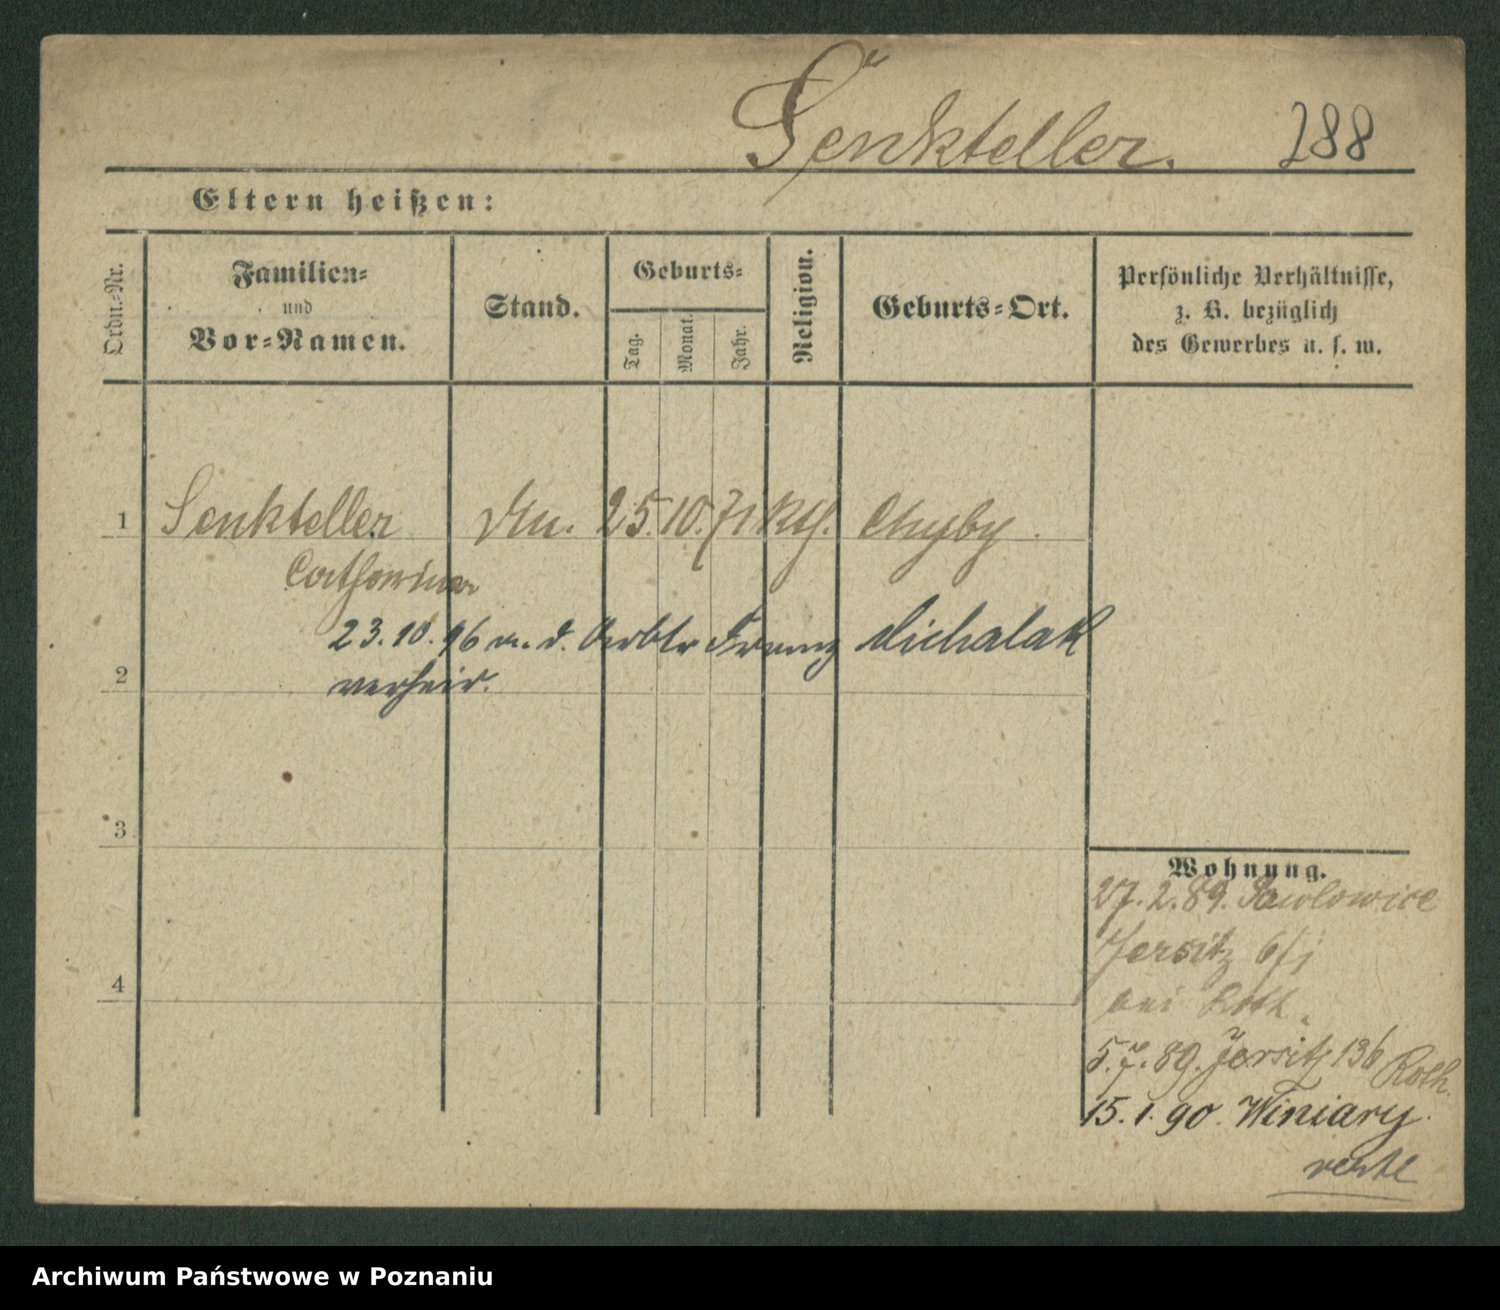 Senkteller. 288
Eltern heißen:
Ordn.-Nr.
Familien-
und
Vor-Namen.
Stand.
Geburts-
Tag.
Monat.
Jahr.
Religion.
Geburts-Ort.
Persönliche Verhältnisse,
z. B. bezüglich
des Gewerbes u. s. w.
1 Senkteller 25. 10. 71 Kth. Chyby.
Catharina
23.10.96 m. d. Arbtr Franz Michalak
2 verheir.
3
4
Wohnung.
27.2.89. Pawlowice
Jersitz
bei Roth.
5.7.89. Jersitz 136 Roth.
15.1.90. Winiary.
verte
Archiwum Państwowe w Poznaniu